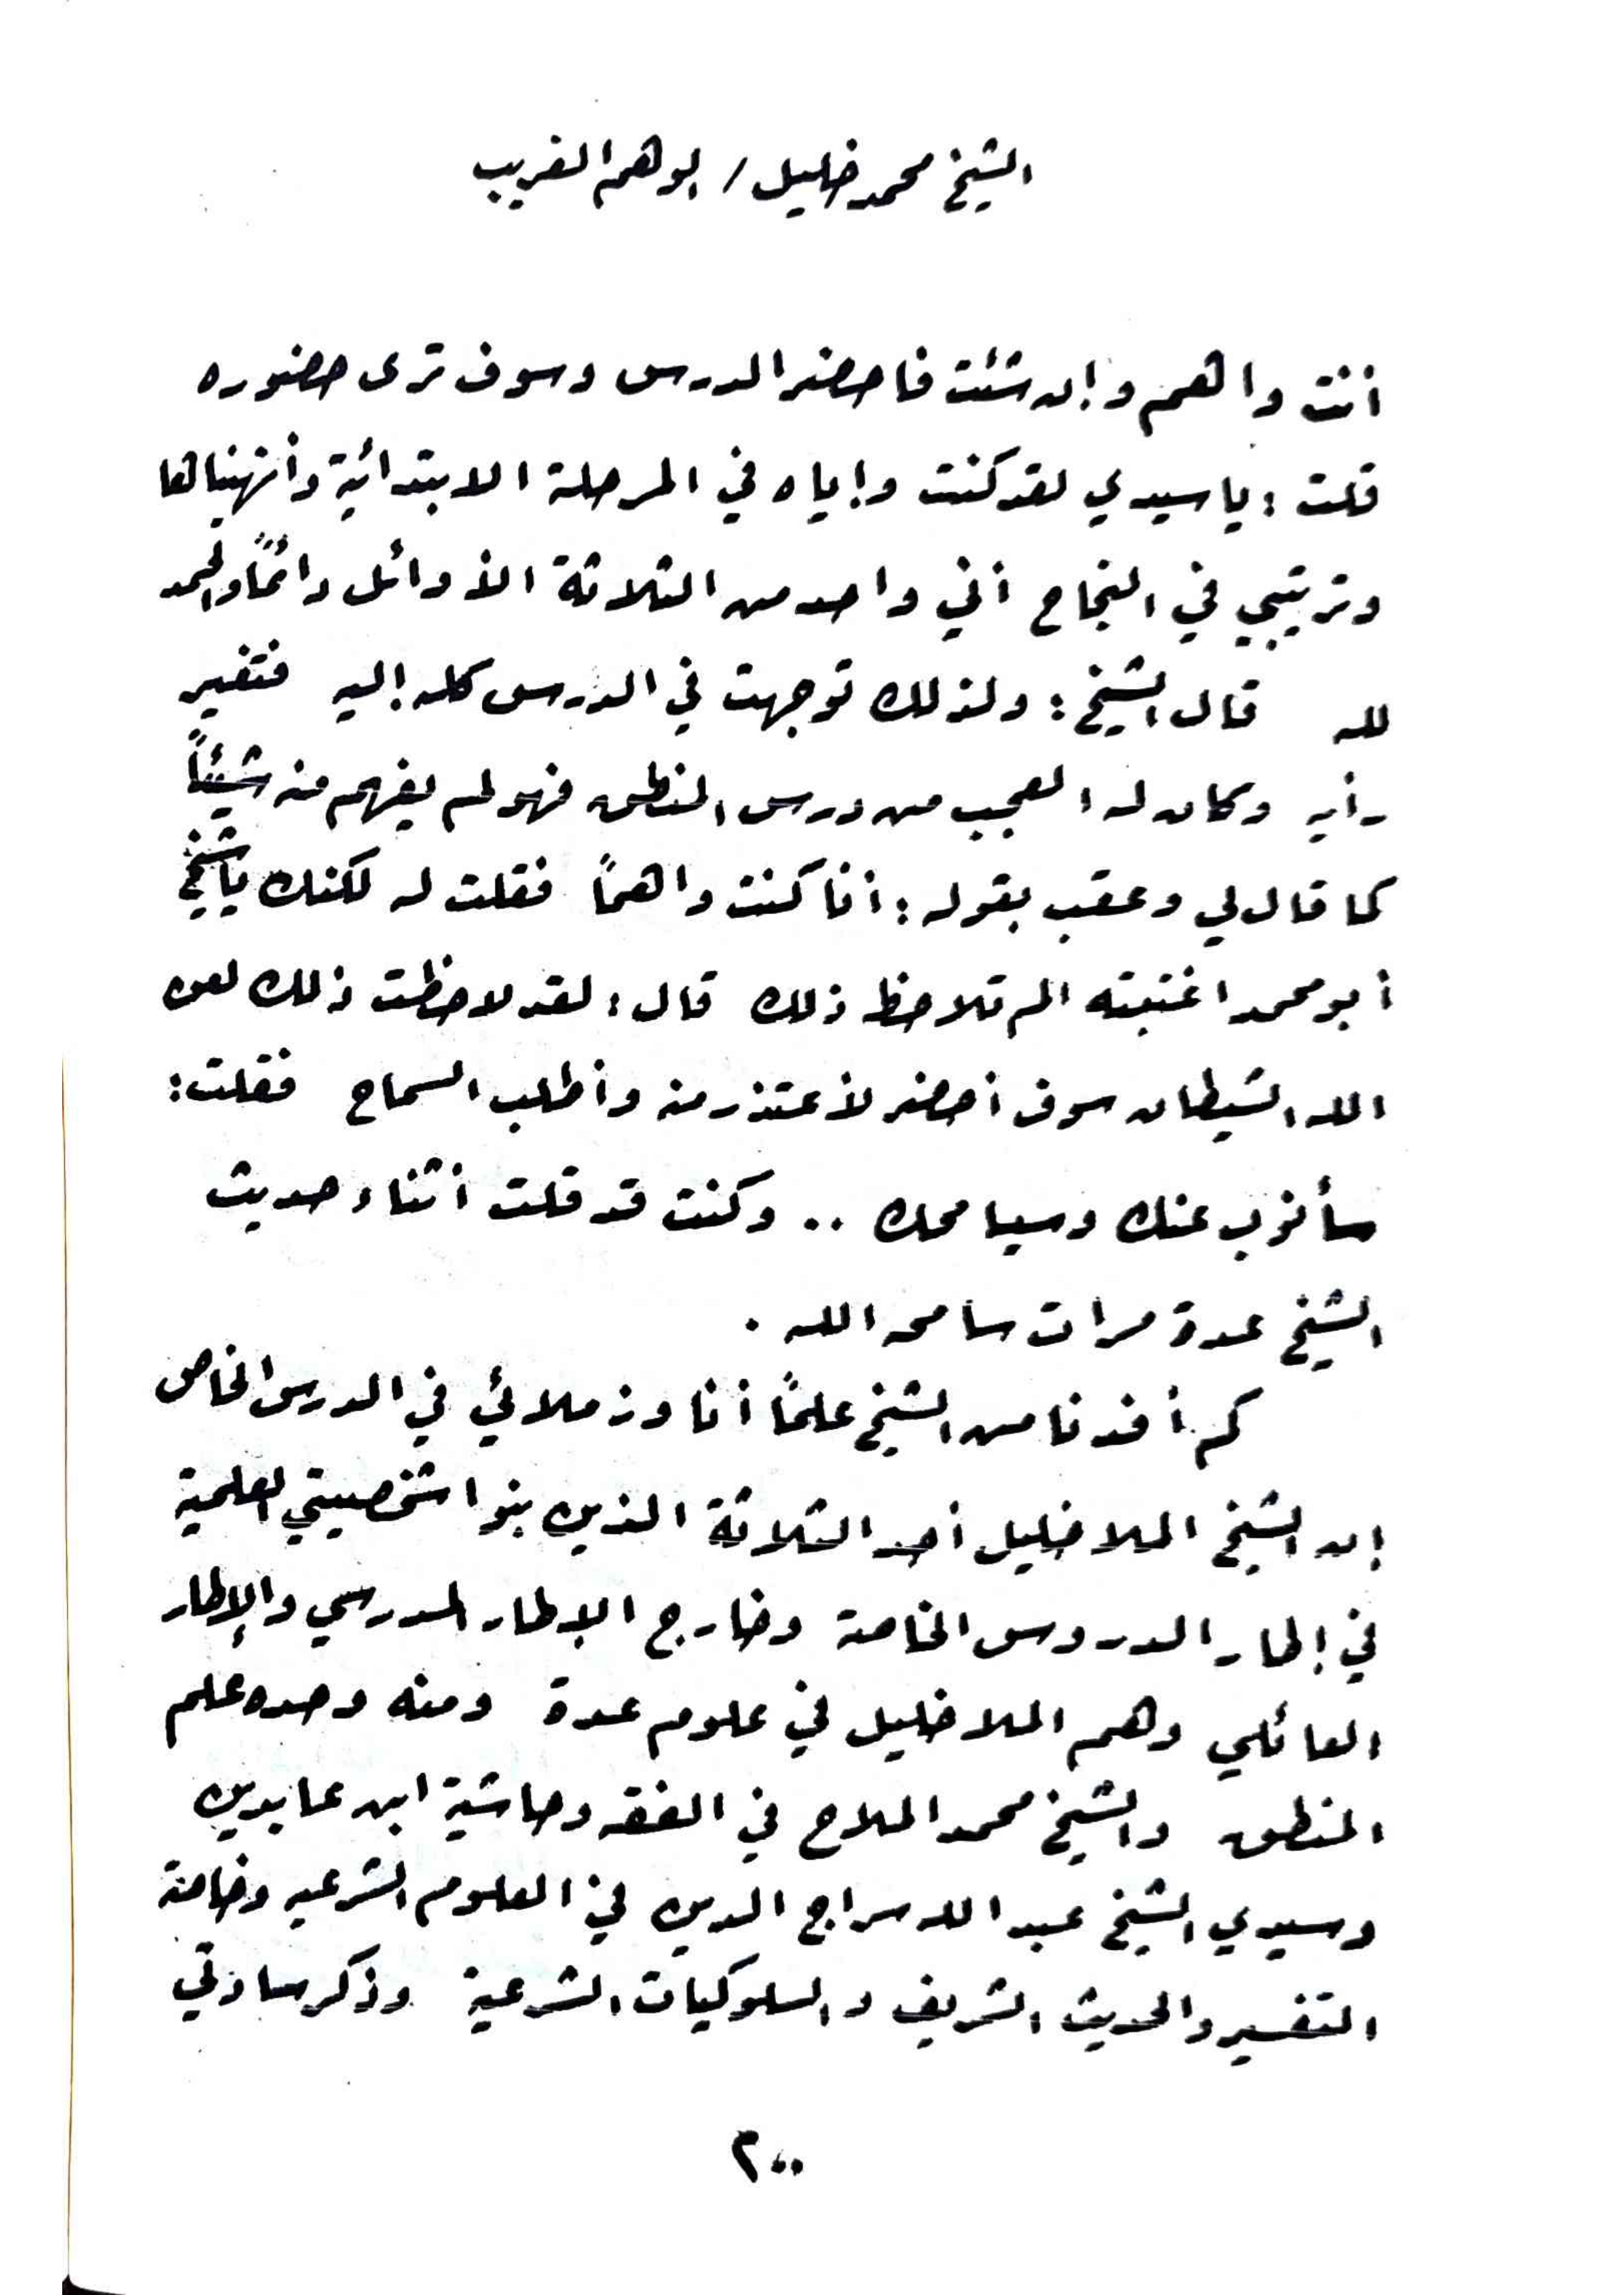 الشيخ محمد خليل / الوهم الغريب
أنت واهم وإن شئت فاحضر الدرس وسوف ترى حضوره
قلت : يا سيدي لقد كنت وإياه في المرحلة الابتدائية وأنهيناها
وترتيبي في النجاح أني واحد من الثلاثة الأوائل دائماً والحمد
لله قال الشيخ : ولذلك توجهت في الدرس كله إليه فتغير
رأيه وكان له العجب من درس المنطق فهو لم يفهم منه شيئاً
كما قال لي وعقب بقوله : أنا كنت واهماً فقلت له لكنك يا شيخ
أبو محمد اغتبته الم تلاحظ ذلك قال : لقد لاحظت ذلك لعن
الله الشيطان سوف أحضر لأعتذر منه وأطلب السماح فقلت :
سأنوب عنك وسيسامحك .. وكنت قد قلت أثناء حديث
الشيخ عدة مرات سامحه الله .
كم أفدنا من الشيخ علماً أنا وزملائي في الدرس الخاص
إن الشيخ الملا خليل أحد الثلاثة الذين بنوا شخصيتي العلمية
في إطار الدروس الخاصة وخارج الإطار المدرسي والإطار
العائلي وهم الملا خليل في علوم عدة ومنه وحده علم
المنطق والشيخ محمد الملاح في الفقه وحاشية ابن عابدين
وسيدي الشيخ عبد الله سراج الدين في العلوم الشرعيه وخاصة
التفسير والحديث الشريف والسلوكيات الشرعية وذكر سادتي
٢٠٠